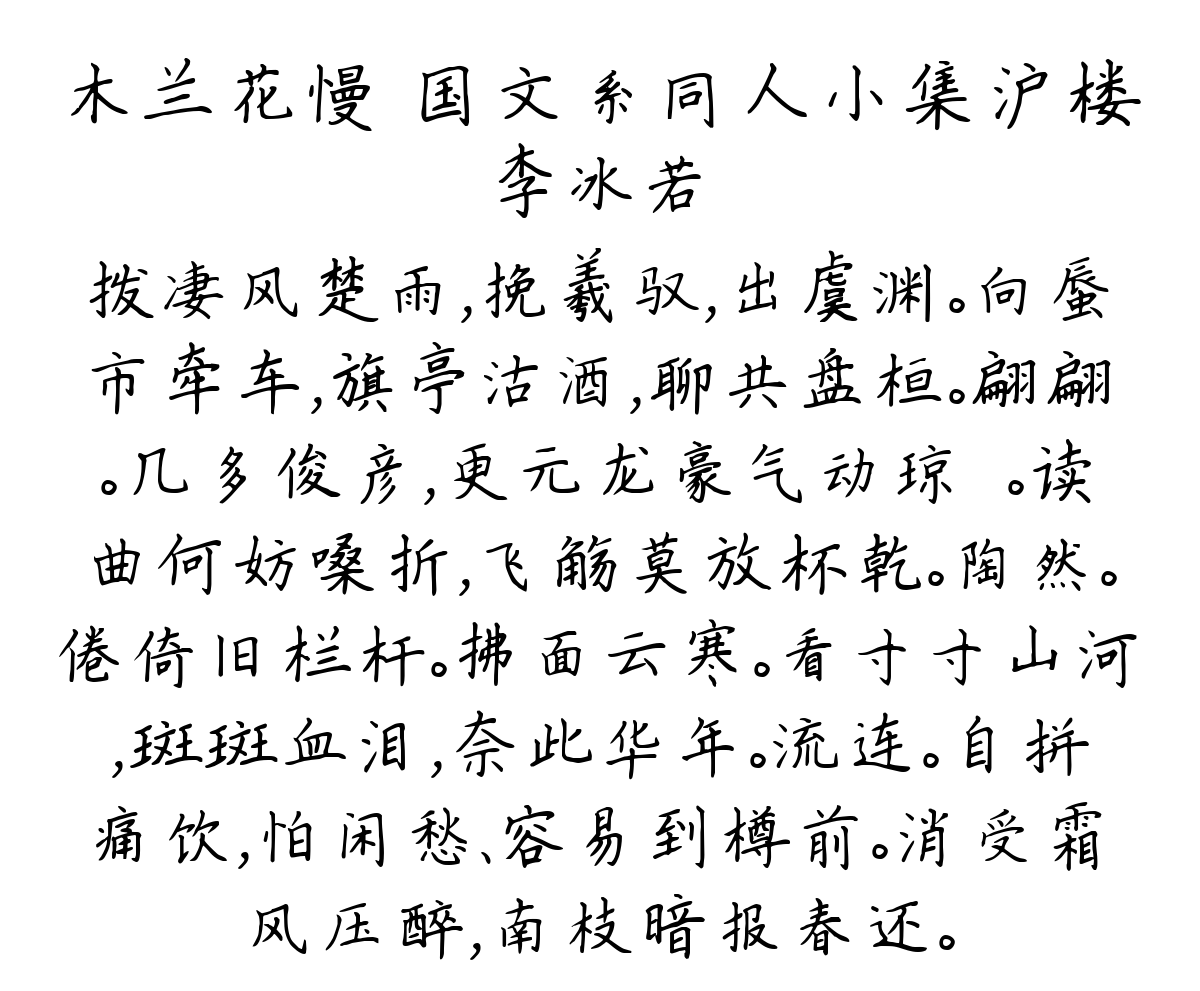 木兰花慢 国文系同人小集沪楼
李冰若
拨凄风楚雨,挽羲驭,出虞渊。向蜃
市牵车,旗亭沽酒,聊共盘桓。翩翩
。几多俊彦,更元龙豪气动琼 。读
曲何妨嗓折,飞觞莫放杯乾。陶然。
倦倚旧栏杆。拂面云寒。看寸寸山河
,斑斑血泪,奈此华年。流连。自拼
痛饮,怕闲愁、容易到樽前。消受霜
风压醉,南枝暗报春还。